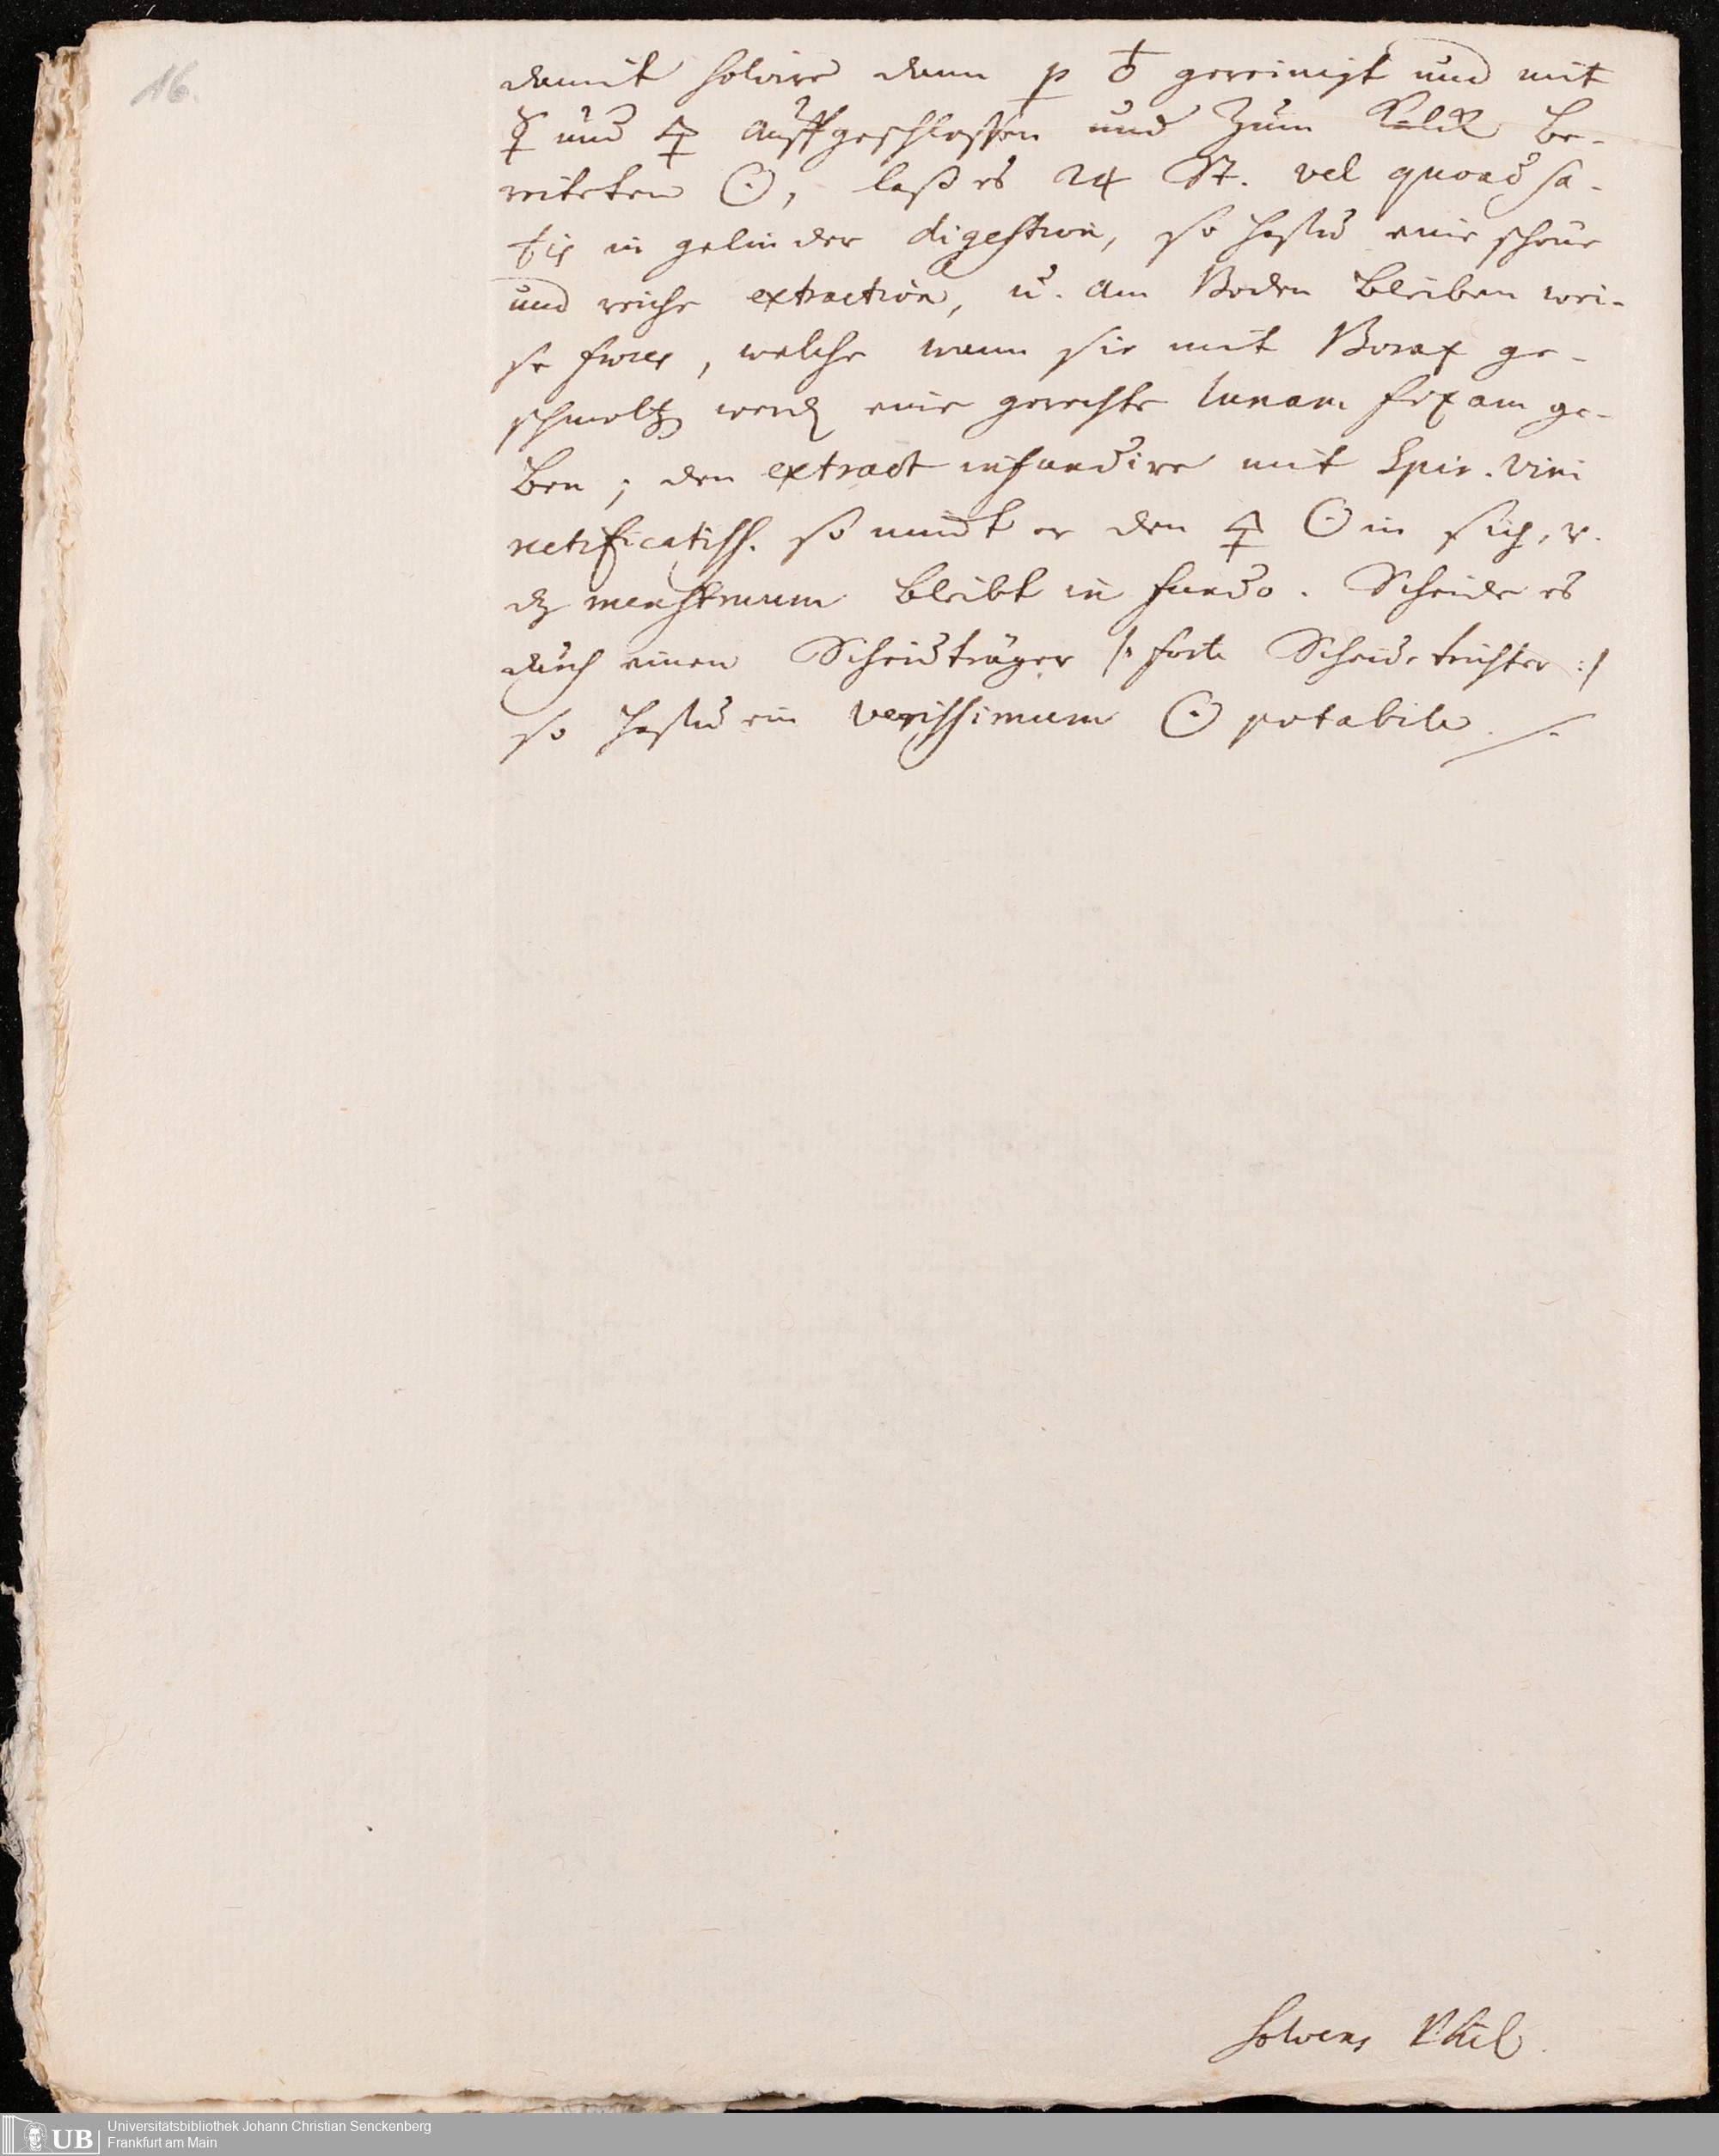 16.
damit solvire dann p ♁ gereinigt und mit
☿ und 🜍 auffgeschloßen und zum Kalck be-
reiteten ☉, laß es 24 St. vel quoad sa-
tis in gelinder digestion, so hastu eine schöne
und reiche extraction, u. am Boden bleiben wei-
se feces, welche wann sie mit Borax ge-
schmoltzen werden eine gerechte lunam fixam ge-
ben; den extract infundire mit Spir. Vini
rectificatiss. so nimdt er den 🜍 ☉ in sich, v.
dz menstruum bleibt in fundo. Scheide es
durch einen Scheidträger /: forte Scheide trichter :/
so hastu ein verissimum ☉ potabile ./.
Solvens Phil.
Universitätsbibliothek Johann Christian Senckenberg
Frankfurt am Main
UB